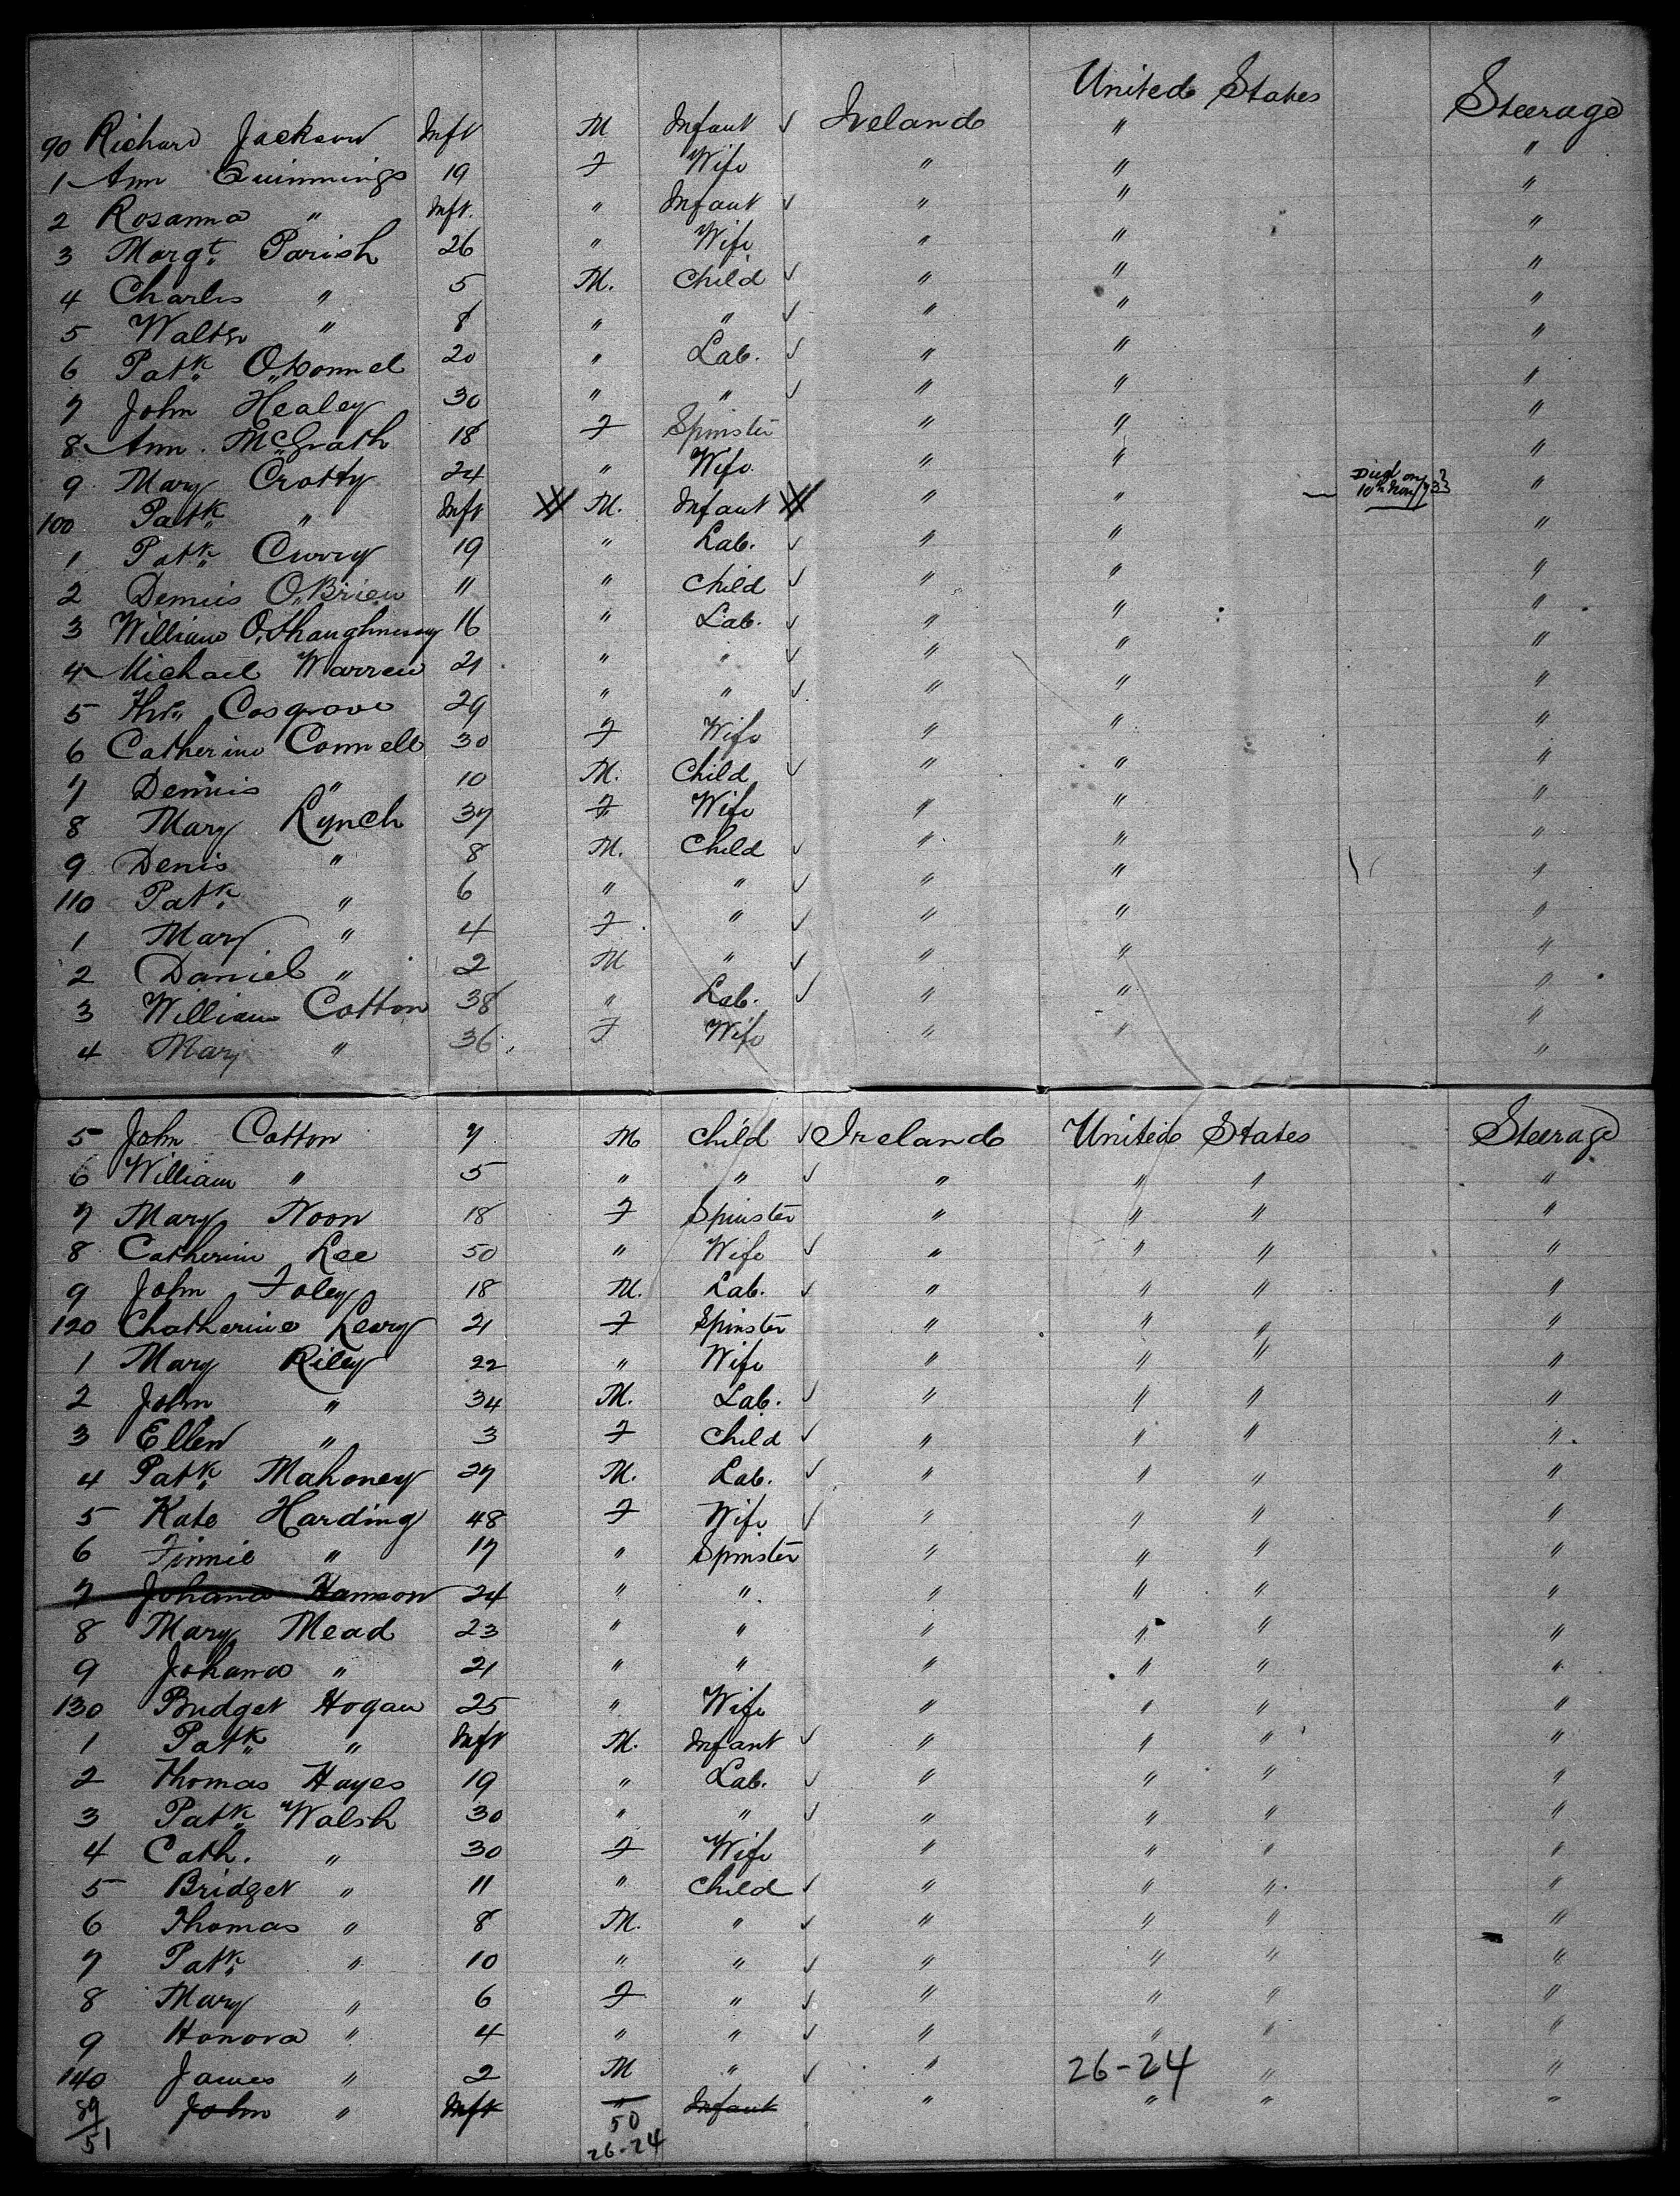 United States
90 Richard Jackson Inft M Infant ✓ Ireland " Steerage
1 Ann Cuimmings 19 F Wife " " "
2 Rosanna " Inft. " Infant ✓ " " "
3 Margt. Parish 26 " Wife " " "
4 Charles " 5 M. Child ✓ " " "
5 Walter " 8 " " ✓ " " "
6 Patk. O'Connel 20 " Lab. ✓ " " "
7 John Healey 30 " " ✓ " " "
8 Ann. McGrath 18 F Spinster " " "
9 Mary Crotty 24 " Wife " " "
100 Patk. " Inft M. Infant " " Died on 10th Nov "
1 Patk. Curry 19 " Lab. ✓ " " "
2 Dennis O'Brien 11 " Child ✓ " " "
3 William O'Shaughnessy 16 " Lab. ✓ " " "
4 Michael Warren 21 " " ✓ " " "
5 Thos. Cosgrove 29 " " ✓ " " "
6 Catherine Connell 30 F Wife " " "
7 Dennis " 10 M. Child ✓ " " "
8 Mary Lynch 37 F Wife " " "
9 Denis " 8 M. Child ✓ " " "
110 Patk. " 6 " " ✓ " " "
1 Mary " 4 F " ✓ " " "
2 Daniel " 2 M " ✓ " " "
3 William Cotton 38 " Lab. ✓ " " "
4 Mary " 36 F Wife " " "
5 John Cotton 7 M Child ✓ Ireland United States Steerage
6 William " 5 " " ✓ " " " "
7 Mary Noon 18 F Spinster " " " "
8 Catherine Lee 50 " Wife ✓ " " " "
9 John Foley 18 M. Lab. ✓ " " " "
120 Chatherine Leary 21 F Spinster " " " "
1 Mary Riley 22 " Wife " " " "
2 John " 34 M. Lab. ✓ " " " "
3 Ellen " 3 F Child ✓ " " " "
4 Patk. Mahoney 27 M. Lab. ✓ " " " "
5 Kate Harding 48 F Wife ✓ " " " "
6 Finnie " 17 " Spinster " " " "
7 Johana Hanson 24 " " " " " "
8 Mary Mead 23 " " " " " "
9 Johana " 21 " " " " " "
130 Bridget Hogan 25 " Wife " " " "
1 Patk. " Inft M. Infant ✓ " " " "
2 Thomas Hayes 19 " Lab. ✓ " " " "
3 Patk. Walsh 30 " " ✓ " " " "
4 Cath. " 30 F Wife " " " "
5 Bridget " 11 " Child ✓ " " " "
6 Thomas " 8 M. " ✓ " " " "
7 Patk. " 10 " " ✓ " " " "
8 Mary " 6 F " ✓ " " " "
9 Honora " 4 " " ✓ " " " "
140 James " 2 M " ✓ " 26-24 " "
89 John " Inft " Infant " " " "
51 50
26-24